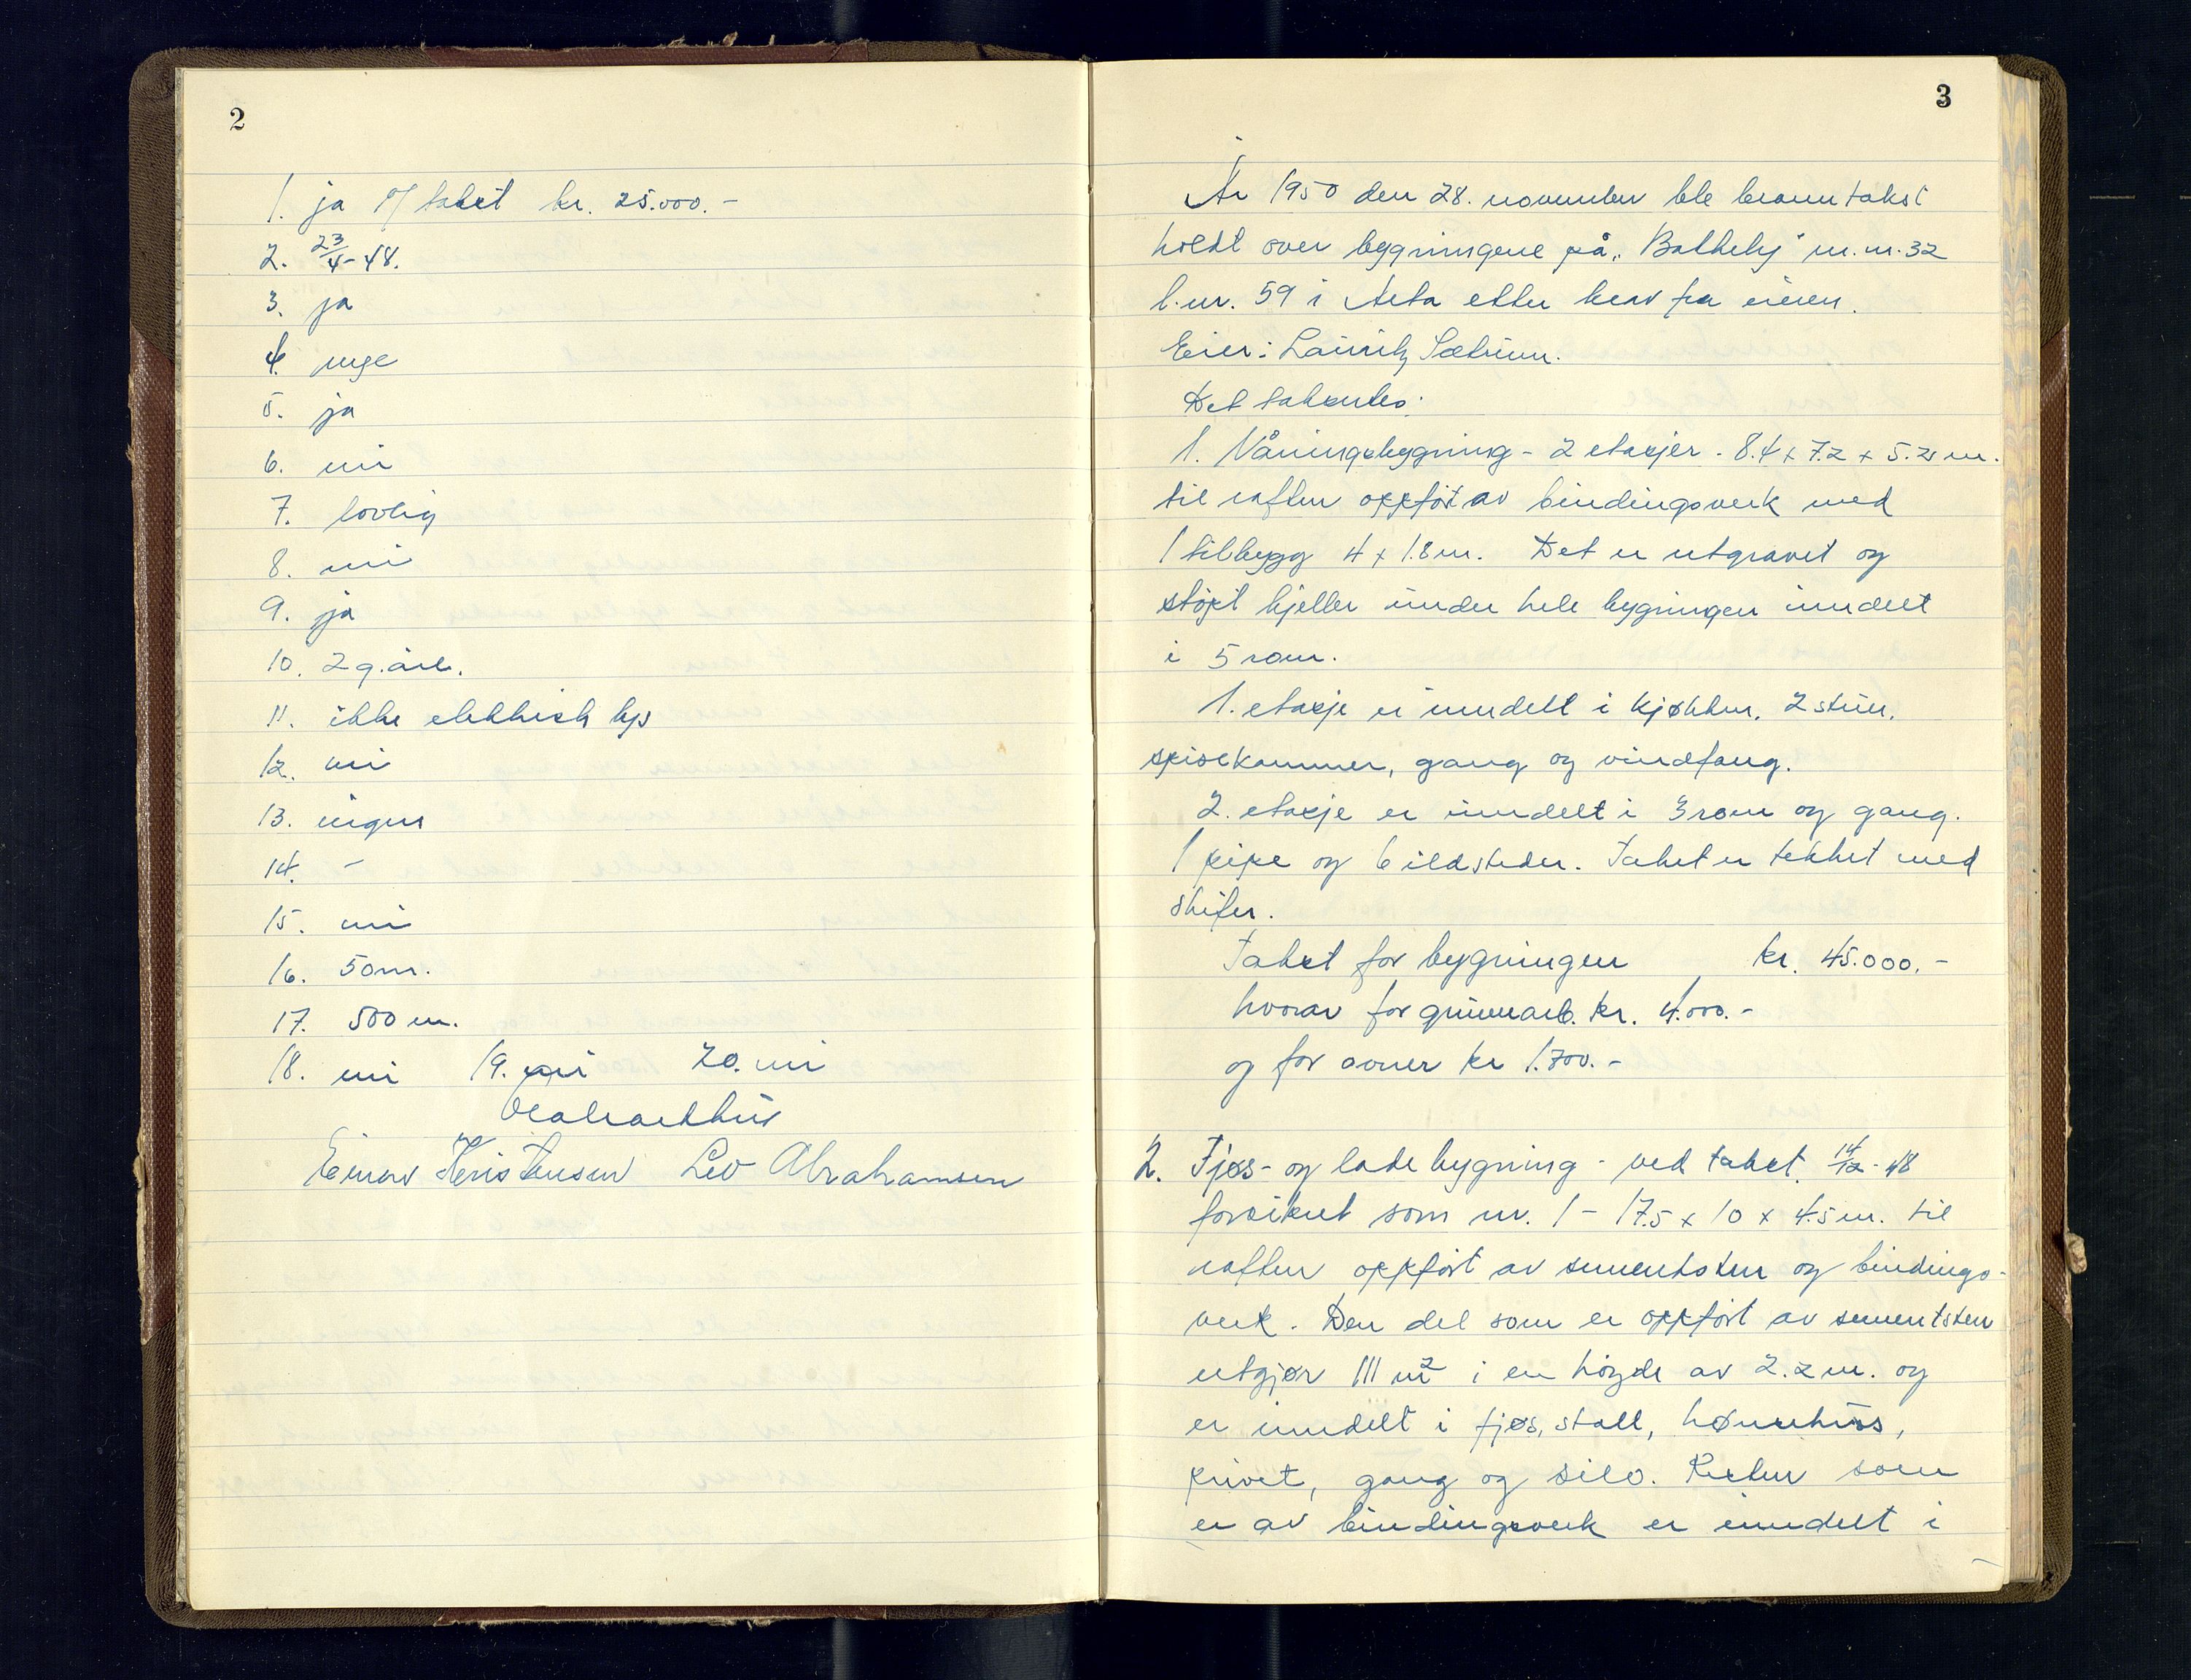 2
1. ja m/ takst kr. 25.000.-
2. 23/4-48.
3. ja
4. inge
5. ja
6. nei
7. lovlig
8. nei
9. ja
10. 2 g. årl.
11. ikke elektrisk lys
12. nei
13. ingen
14. -
15. nei
16. 50 m.
17. 500 m.
18. nei 19. nei 20. nei
Einar Kristensen Leo Abrahamsen
3
År 1950 den 28. november ble branntakst
holdt over bygningene på „Bakkely" m.nr. 32
l.nr. 59 i Alta etter krav fra eieren.
Eier: Lauritz Sætrum.
Det takseres:
1. Våningsbygning - 2 etasjer - 8.4 x 7.2 x 5.2 m.
til raften oppført av bindingsverk med
1 tilbygg 4 x 1.8 m. Det er utgravet og
støpt kjeller under hele bygningen inndelt
i 5 rom.
1. etasje er inndelt i kjøkken, 2 stuer,
spisekammer, gang og vindfang.
2. etasje er inndelt i 3 rom og gang.
1 pipe og 6 ildsteder. Taket er tekket med
skifer.
Takst for bygningen kr. 45.000.-
hvorav for grunnarb. kr. 4.000.-
og for ovner kr 1.700.-
2. Fjøs- og ladebygning - ved takst 14/12-48
forsikret som nr. 1 - 17.5 x 10 x 4.5 m. til
raften oppført av sementsten og bindings-
verk. Den del som er oppført av sementsten
utgjør 111 m2 i en høyde av 2.2 m. og
er inndelt i fjøs, stall, hønsehus,
privet, gang og silo. Resten som
er av bindingsverk er inndelt i